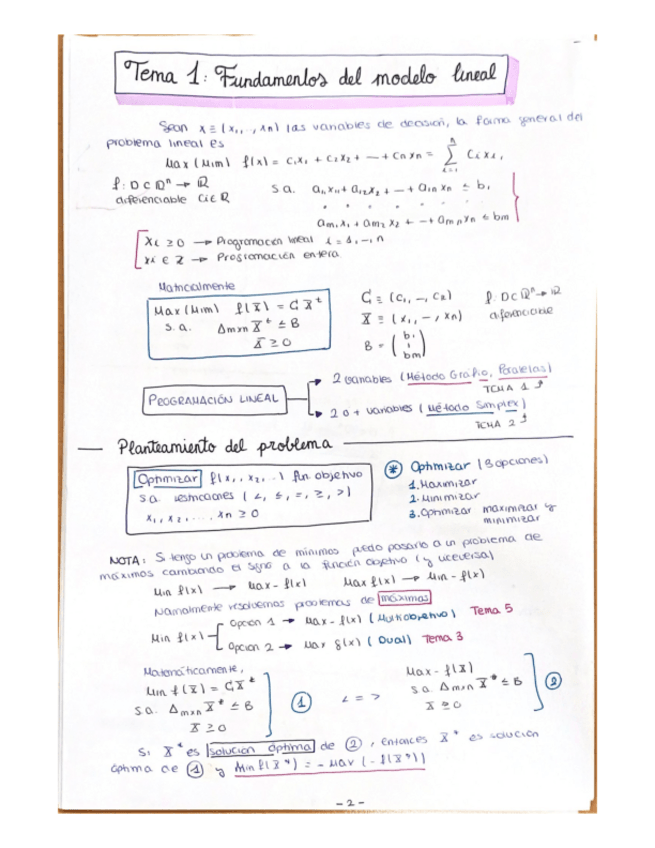 Tema 1: Fundamentos del modelo lineal
Sean x ≡ (x₁,..,xn) las variables de decisión, la forma general del
problema lineal es
Max (Mim) f(x) = c₁x₁ + c₂x₂ + — + cnxn = Σ cixi,
n
i=1
f: D ⊂ ℝⁿ → ℝ
diferenciable ci ∈ ℝ
s.a. a₁₁x₁ + a₁₂x₂ + — + a₁nxn ≤ b₁
. . . . . . .
am₁x₁ + am₂x₂ + — + amnxn ≤ bm
xi ≥ 0 → Programación lineal i = 1,—,n
xi ∈ Z → Programación entera
Matricialmente
Max (Mim) f(x̄) = C x̄ᵗ
s.a. Amxn x̄ᵗ ≤ B
x̄ ≥ 0
C ≡ (c₁,—, cn) f: D ⊂ ℝⁿ → ℝ
x̄ ≡ (x₁,—, xn) diferenciable
B = (b₁ ⋮ bm)
PROGRAMACIÓN LINEAL
2 variables (Método Gráfico, Paralelas)
TEMA 1
2 o + variables (Método Simplex)
TEMA 2
Planteamiento del problema
Optimizar f(x₁, x₂,..) fin objetivo
s.a. restricciones (<, ≤, =, ≥, >)
x₁, x₂, ..., xn ≥ 0
* Optimizar (3 opciones)
1. Maximizar
2. Minimizar
3. Optimizar maximizar y
minimizar
NOTA: Si tengo un problema de mínimos puedo pasarlo a un problema de
máximos cambiando el signo a la función objetivo (y viceversa)
Min f(x) → Max - f(x) Max f(x) → Min - f(x)
Normalmente resolvemos problemas de máximos
Min f(x)
Opcion 1 → Max - f(x) (Multiobjetivo) Tema 5
Opcion 2 → Max g(x) (Dual) Tema 3
Matemáticamente,
Min f(x̄) = C x̄ᵗ
s.a. Amxn x̄ᵗ ≤ B
x̄ ≥ 0
1
< = >
Max - f(x̄)
s.a. Amxn x̄ᵗ ≤ B
x̄ ≥ 0
2
Si x̄* es solución óptima de 2, entonces x̄* es solución
óptima de 1 y Min f(x̄*) = - Max (- f(x̄*))
- 2 -